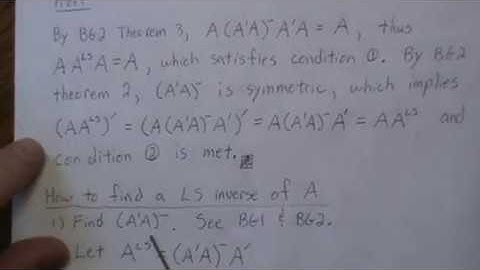 Proof:
By BG2 Theorem 3, A(A'A)⁻A'A = A, thus
AAᴸˢA = A, which satisfies condition ①. By BG2
theorem 2, (A'A)⁻ is symmetric, which implies
(AAᴸˢ)' = (A(A'A)⁻A')' = A(A'A)⁻A' = AAᴸˢ and
condition ② is met.
How to find a LS inverse of A
1) Find (A'A)⁻. See BG1 & BG2.
Let Aᴸˢ = (A'A)⁻A'